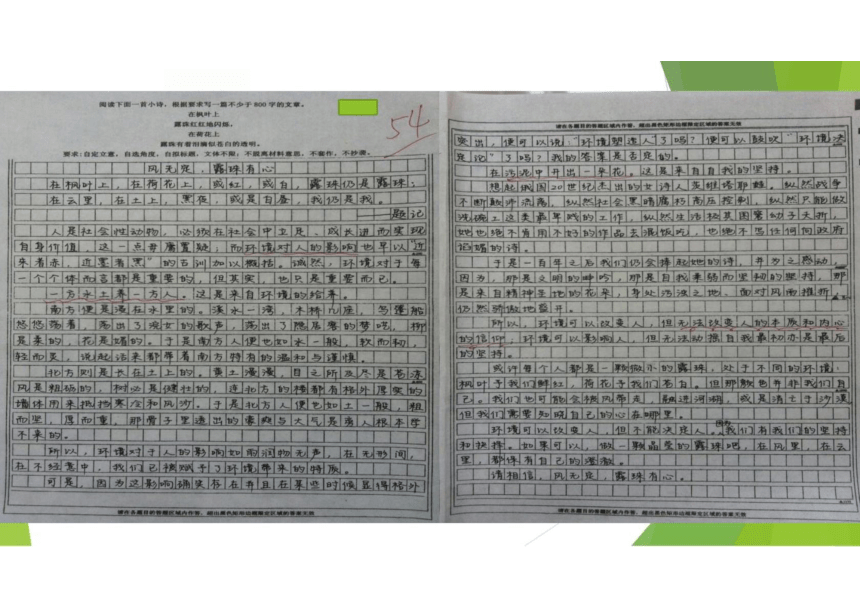 阅读下面一首小诗，根据要求写一篇不少于800字的文章。
在枫叶上
露珠红红地闪烁。
在荷花上
露珠有着泪滴似苍白的透明。
要求：自定立意，自选角度，自拟标题，文体不限；不脱离材料意思，不套作，不抄袭。
54
风无定，露珠有心
在枫叶上，在荷花上，或红，或白，露珠仍是露珠；
在云里，在土上，黑夜，或是白昼，我仍是我。
——题记
人是社会性动物，必须在社会中立足、成长进而实现
自身价值，这一点毋庸置疑；而环境对人的影响也早以“近
朱者赤，近墨者黑”的古训加以概括。诚然，环境对于每
一个个体而言都是重要的，但其实，也只是重要而已。
一方水土养一方人。这是来自环境的给养。
南方便是漫在水里的。溪水一湾，木桥几座，乌篷船
悠悠荡着，荡出了渔女的歌声，荡出了隐居客的梦呓，柳
是柔的，花是媚的。于是南方人便也如水一般，软而韧，
轻而灵，说起话来都带着南方特有的温和与谨慎。
北方则是长在土上的。黄土漫漫，目之所及尽是苍凉
风是粗砺的，树必是健壮的，连北方的楼都有格外厚实的
墙体用来抵挡寒冷和风沙。于是北方人便也如土一般，粗
而坚，厚而重。那骨子里透出的豪爽与大气是南人根本学
不来的。
所以，环境对于人的影响如雨润物无声，在无形间，
在不经意中，我们已被赋予了环境带来的特质。
可是，因为这影响确实存在并且在某些时候显得格外
请在各题目的答题区域内作答，超出黑色矩形边框限定区域的答案无效
请在各题目的答题区域内作答，超出黑色矩形边框限定区域的答案无效
突出，便可以说“环境塑造人”了吗？便可以鼓吹“环境决
定论”了吗？我的答案是否定的。
在污泥中开出一朵花。这是来自自我的坚持。
想起俄国20世纪杰出的女诗人茨维塔耶娃。纵然战争
不断颠沛流离，纵然社会黑暗腐朽高压控制，纵然只能做
洗碗工这类最卑贱的工作，纵然生活极其困窘幼子夭折，
她也绝不肯用不好的作品去混饭吃，也绝不写任何向政府
谄媚的诗。
于是一百年之后我们仍会捧起她的诗，并为之感动，
因为，那是文明的呻吟，那是自我柔弱而坚韧的坚持，那
是来自精神圣地的花朵，身处污浊之地，面对风雨摧折，
仍然骄傲地盛开。
所以，环境可以改变人，但无法改变人的本质和内心
的信仰，环境可以影响人，但无法动摇自我最初亦是最后
的坚持。
或许每个人都是一颗微小的露珠，处于不同的环境，
枫叶予我们鲜红，荷花予我们苍白。但那颜色并非我们自
己。我们也可能会被风带走，融进河湖，或是消亡于沙漠
但我们需要知晓自己的心在哪里。
环境可以改变人，但不能决定人。因为我们有我们的坚持
和抉择。如果可以，做一颗晶莹的露珠吧，在风里，在云
里，都保有自己的澄澈。
请相信，风无定，露珠有心。
请在各题目的答题区域内作答，超出黑色矩形边框限定区域的答案无效